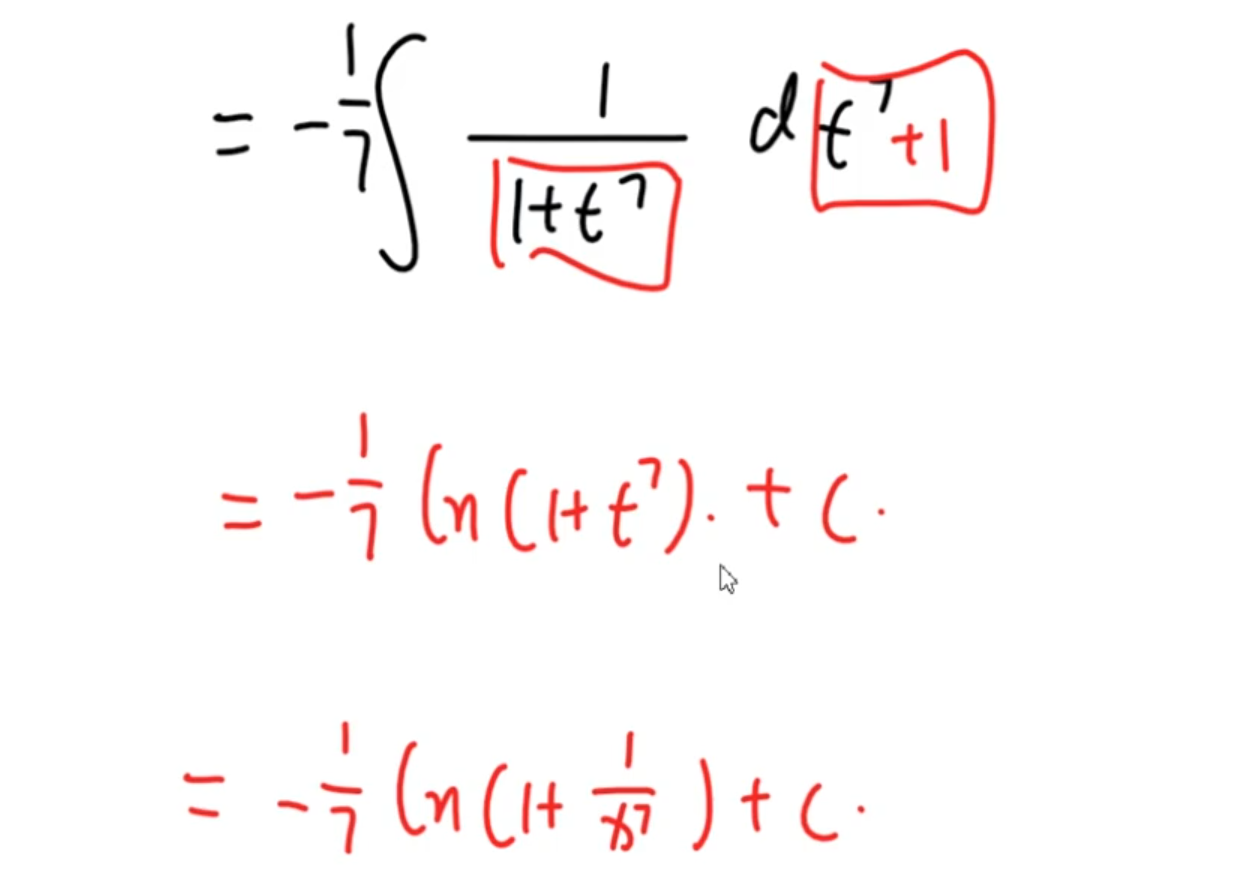 = -1/7 ∫ 1/(1+t⁷) d t⁷ +1
= -1/7 ln(1+t⁷). + C.
= -1/7 ln(1+ 1/x⁷) + C.